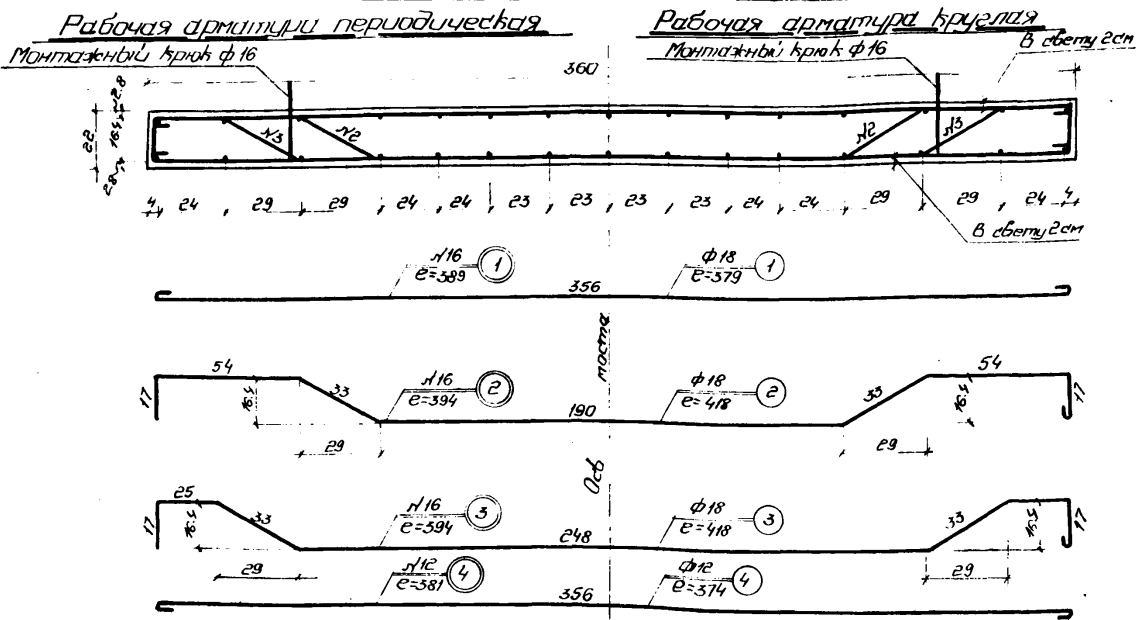 Рабочая арматура периодическая
Рабочая арматура круглая
Монтажный крюк ф16
Монтажный крюк ф16
В свету 2см
360
2.8
22
16.4
2.8
N3
N2
N2
N3
4 24 29 29 24 24 23 23 23 23 24 24 29 29 24 4
В свету 2см
N16
e=389
1
ф18
e=379
1
356
моста
54
54
17
16.4
33
N16
e=394
2
ф18
e=418
2
33
16.4
17
190
29
29
Ось
25
17
16.4
33
N16
e=394
3
ф18
e=418
3
33
16.4
17
248
29
29
N12
e=381
4
ф12
e=374
4
356